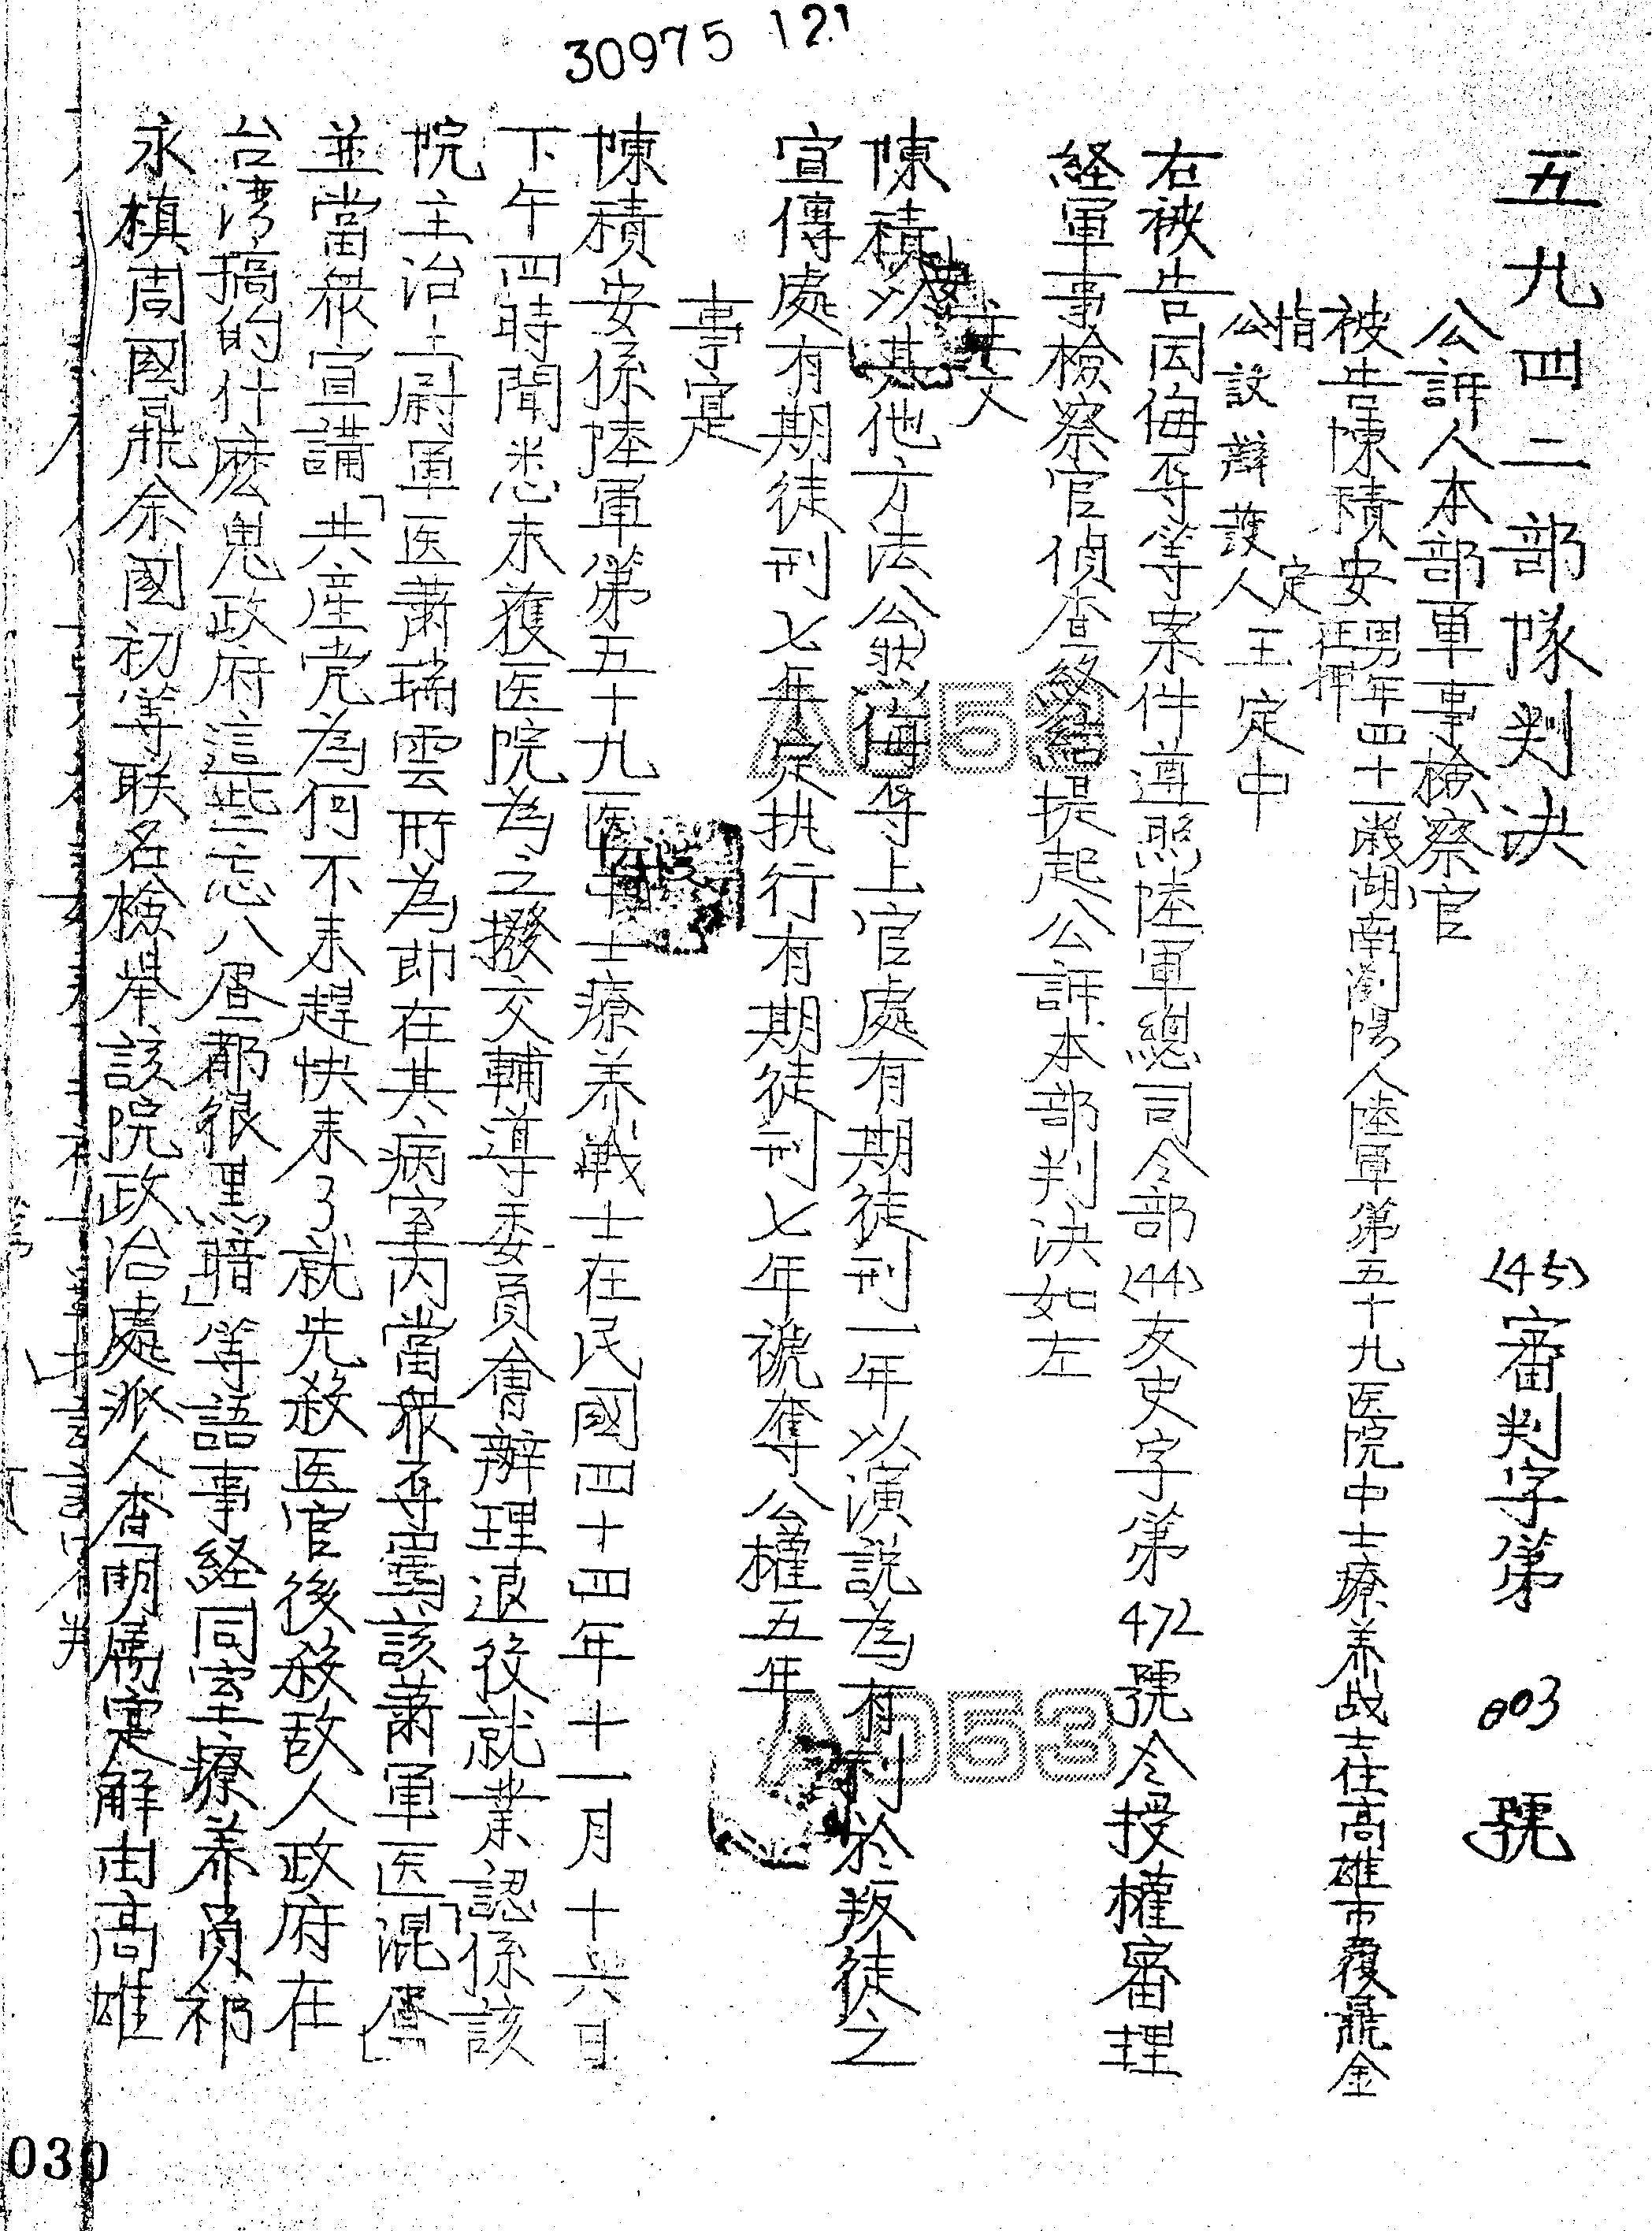 30975 12.1
五九四二部隊判決 (45)審判字第 003 號
公訴人本部軍事檢察官
被告陳積安 男年四十一歲湖南瀏陽人陸軍第五十九医院中士療养战士住高雄市覆鼎金
在押
指定
公設辯護人王定中
右被告因侮辱等案件遵照陸軍總司令部(44)友史字第472號令授權審理
経軍事檢察官偵查終結提起公訴本部判決如左
主文
陳積安以其他方法公然侮辱上官處有期徒刑一年以演説為有利於叛徒之
宣傳處有期徒刑七年定执行有期徒刑七年褫奪公權五年
事寔
陳積安係陸軍第五十九医院中士療养戰士在民國四十四年十一月十六日
下午四時聞悉未獲医院為之撥交輔導委員會辦理退役就業認係該
院主治上尉軍医蕭瑞雲所為即在其病室內當衆辱罵該蕭軍医「混蛋」
並當衆宣講「共產党為何不来趕快来了就先殺医官後殺敌人政府在
台湾搞的什麽鬼政府這些忘八蛋都很黑暗」等語事経同室療养員祁
永槙周國鼎余國初等联名檢舉該院政治處派人查明屬寔解由高雄
A053
A053
030